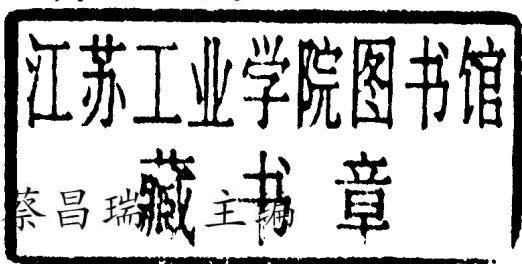 江苏工业学院图书馆
藏书章
蔡昌瑞 主编